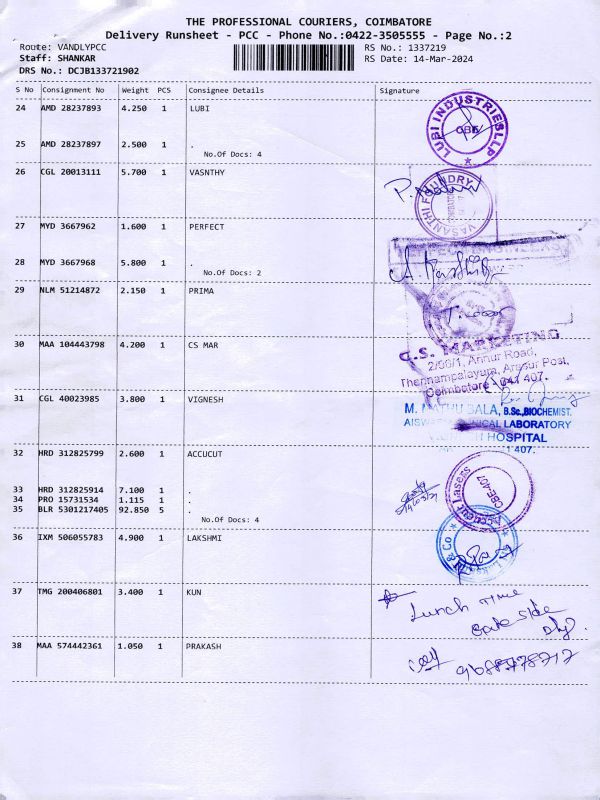 THE PROFESSIONAL COURIERS, COIMBATORE
Delivery Runsheet - PCC - Phone No.:0422-3505555 - Page No.:2
Route: VANDLYPCC RS No.: 1337219
Staff: SHANKAR RS Date: 14-Mar-2024
DRS No.: DCJB133721902
S No Consignment No Weight PCS Consignee Details Signature
24 AMD 28237893 4.250 1 LUBI
LUBI INDUSTRIES LLP
CBE
25 AMD 28237897 2.500 1 .
No.Of Docs: 4
26 CGL 20013111 5.700 1 VASNTHY
VASANTHI FOUNDRY
27 MYD 3667962 1.600 1 PERFECT
28 MYD 3667968 5.800 1 .
No.Of Docs: 2
29 NLM 51214872 2.150 1 PRIMA
30 MAA 104443798 4.200 1 CS MAR
C.S. MARKETING
Annur Road,
Thennampalayam, Arasur Post,
Coimbatore - 641 407.
31 CGL 40023985 3.800 1 VIGNESH
BALA, B.Sc.,BIOCHEMIST.
LABORATORY
HOSPITAL
32 HRD 312825799 2.600 1 ACCUCUT
Accucut Lasers
CBE-407
33 HRD 312825914 7.100 1 .
34 PRO 15731534 1.115 1 .
35 BLR 5301217405 92.850 5 .
No.Of Docs: 4
36 IXM 506055783 4.900 1 LAKSHMI
& Co
37 TMG 200406801 3.400 1 KUN
Lunch Time
38 MAA 574442361 1.050 1 PRAKASH